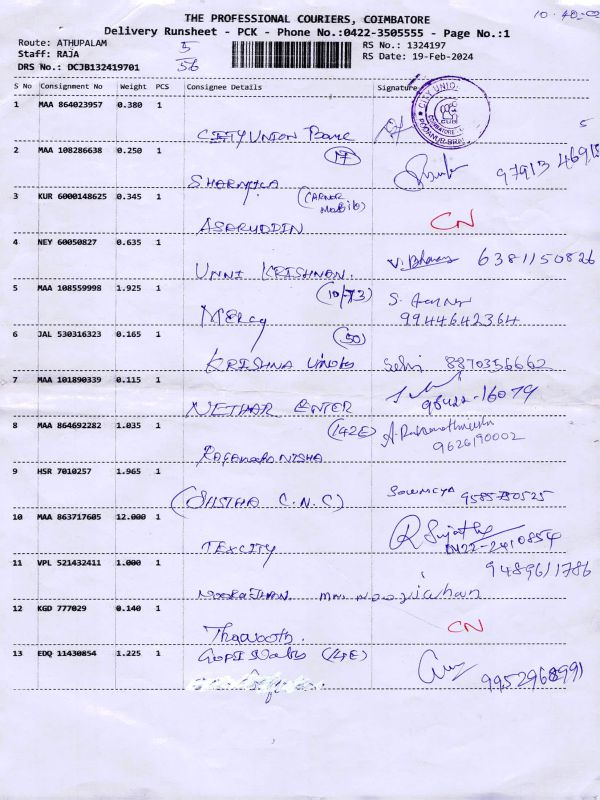 THE PROFESSIONAL COURIERS, COIMBATORE
Delivery Runsheet - PCK - Phone No.:0422-3505555 - Page No.:1
Route: ATHUPALAM
Staff: RAJA
DRS No.: DCJB132419701
5
56
RS No.: 1324197
RS Date: 19-Feb-2024
S No Consignment No Weight PCS Consignee Details Signature
1 MAA 864023957 0.380 1
CITY UNION Banc
CITY UNION
2 MAA 108286638 0.250 1
(17)
SHARMILA
97913 46915
3 KUR 6000148625 0.345 1
ASARUDDIN
CN
4 NEY 60050827 0.635 1
UNNI KRISHNAN.
6381150826
5 MAA 108559998 1.925 1
(10/73)
Mercy
9944642364
6 JAL 530316323 0.165 1
(50)
KRISHNA
Selvi 8870356662
7 MAA 101890339 0.115 1
ENTER
98422-16079
8 MAA 864692282 1.035 1
(142E)
9626190002
9 HSR 7010257 1.965 1
C.N.C)
Sowmeya 9585780525
10 MAA 863717605 12.000 1
TEXCITY
R Sujatha
0422-2410854
11 VPL 521432411 1.000 1
9489611786
12 KGD 777029 0.140 1
CN
13 EDQ 11430854 1.225 1
GOPI
9952968991